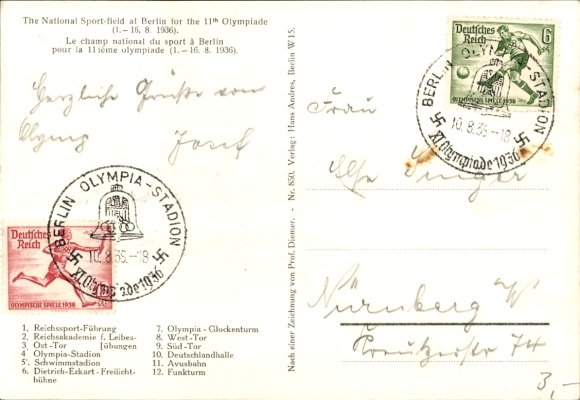 The National Sport-field at Berlin for the 11th Olympiade
(1.—16. 8. 1936).
Le champ national du sport à Berlin
pour la 11ième olympiade (1.—16. 8. 1936).
Herzliche Grüße vom
Olymp Josef
BERLIN OLYMPIA-STADION
10.8.36.-18
XI. Olympiade 1936
Deutsches
Reich
OLYMPISCHE SPIELE 1936
1. Reichssport-Führung
2. Reichsakademie f. Leibes-
3. Ost-Tor [übungen
4. Olympia-Stadion
5. Schwimmstadion
6. Dietrich-Eckart-Freilicht-
bühne
7. Olympia-Glockenturm
8. West-Tor
9. Süd-Tor
10. Deutschlandhalle
11. Avusbahn
12. Funkturm
Nach einer Zeichnung von Prof. Diemer. - Nr. 850. Verlag: Hans Andres, Berlin W 15.
Deutsches
Reich
6
OLYMPISCHE SPIELE 1936
BERLIN OLYMPIA-STADION
10.8.36.-18
XI. Olympiade 1936
Frau
Else Singer
Nürnberg W
Kreutzerstr 74
3,-